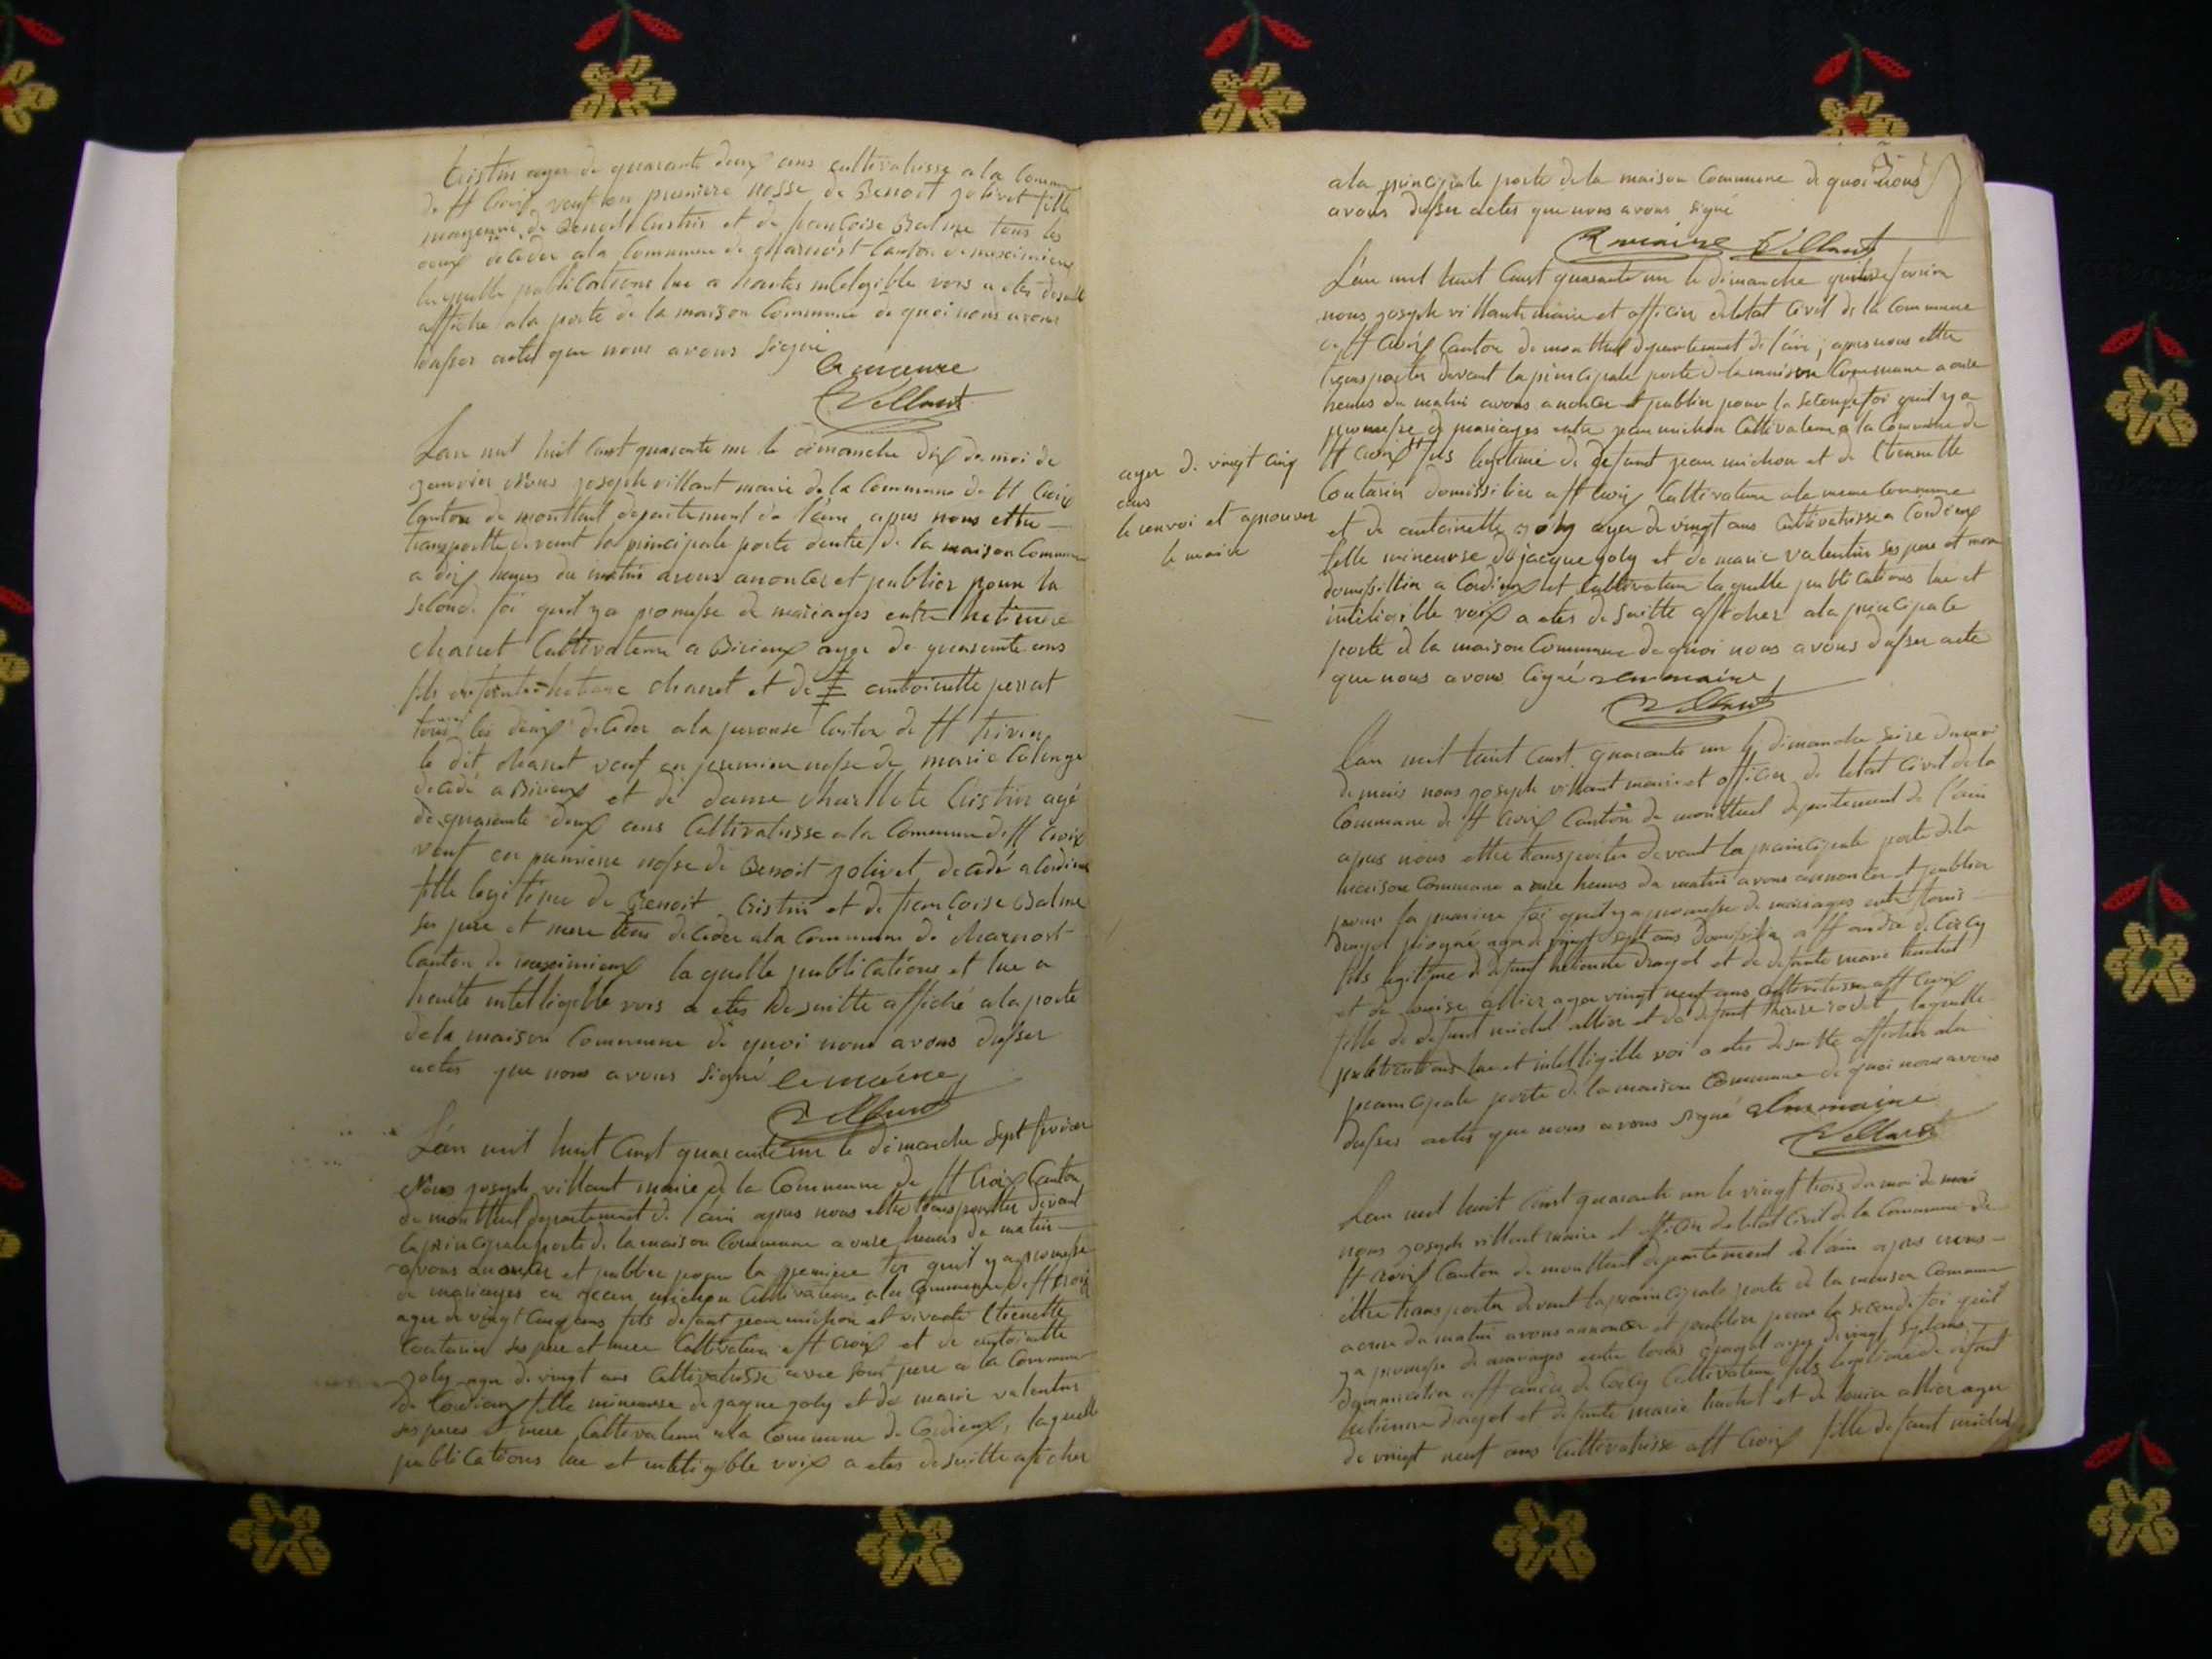 Cristin ager de quarante deux ans cultivatrisse a la Commune
de St Croix veuf en premiere nosse de Benoit jolivet fille
mageure de Benoit Cristin et de françoise Balme tous les
deux décéder a la Commune de Charnost Canton de meximieux
laquelle publications lue a hautes intelegible vois a etes desuite
affiche a la porte de la maison Commune de quoi nous avons
dusser actes que nous avons signé
le maire
Villant
Lan mil huit Cent quarante un le dimanche dix du moi de
janvier Nous joseph villant maire de la Commune de St Croix
Canton de montluel département de l'ain apres nous ettre
transportte devent la principale porte dentre de la maison Commune
a dix heures du matin avons anoncer et publier pour la
seconde foi quil ya promesse de mariages entre hetienne
chanet Cultivateur a Birieux ager de quarante ans
fils defunt hetiene chanet et de antoinette perrat
tous les deux déceder a la perouse Canton de St trivier
le dit chanet veuf en premiere nosse de marie Colonge
décédé a Birieux et de dame charllote Cristin agé
de quarante deux ans Cultivatrisse a la Commune de St Croix
veuf en premiere nosse de Benoit jolivet décédé a Cordieux
fille legitime de Benoit Cristin et de françoise Balme
ses pere et mere tous déceder a la Commune de charnost
Canton de meximieux laquelle publications et lue a
heute intelligible vois a etes desuitte affiché a la porte
de la maison Commune de quoi nous avons dusser
actes que nous avons signé le maire
Villant
L'an mil huit Cent quarante un le dimanche sept fevrier
Nous joseph villant maire de la Commune de St Croix Canton
de montluel departement de l'ain apres nous ettre transportter devant
la principale porte de la maison Commune a onze heures du matin
avons anoncer et publier pour la premiere foi quil ya promesse
de mariages en jean michon Cultivateur a la Commune de St Croix
ager de vingt Cinq ans fils defunt jean michon et vivante Etiennette
Contarin ses pere et mere Cultivateur a St Croix et de antoinette
joly ager de vingt ans Cultivatrisse avec son pere a la Commune
de Cordieux fille mineure de jaque joly et de marie valentin
ses peres et mere Cultivateur a la Commune de Cordieux, laquelle
publications lue et inteligible voix a etes desuitte aficher
a la principale porte de la maison Commune de quoi nous
avons dusser actes que nous avons signé
le maire Villant
L'an mil huit Cent quarante un le dimanche fevrier
nous joseph villant maire et officier de letat Civil de la Commune
de St Croix Canton de montluel departement de l'ain, apres nous ettre
transporter devant la principale porte de la maison Commune a onze
heures du matin avons anoncer et publier pour la seconde foi quil y a
promesse de mariages entre jean michon Cultivateur a la Commune de
St Croix fils legitime de defunt jean michon et de Etiennette
Contarin domissilier a St Croix Cultivateur a la meme Commune
et de antoinette joly ager de vingt ans Cultivatrisse a Cordieux
fille mineurse de jacque joly et de marie valentin ses pere et mere
domissillier a Cordieux et Cultivateur laquelle publications lue et
inteligible voix a etes desuitte afficher a la principale
porte de la maison Commune de quoi nous avons dusser acte
que nous avons signé le maire
Villant
ager de vingt Cinq
ans
le renvoi et aprouver
le maire
L'an mil huit Cent quarante un le dimanche seize du moi
de mais nous joseph villant maire et officier de letat Civil de la
Commune de St Croix Canton de montluel departement de l'ain
apres nous ettre transporter devant la principale porte de la
maison Commune a onze heures du matin avons annoncer et publier
pour la premiere foi quil ya promesse de mariages entre
ager de vingt sept ans domisilier a St andre de Corcy
fils legitime de defunt hetienne dragol et de defunte marie
et de louise allier ager vingt neuf ans Cultivatrisse a St Croix
fille de defunt michel allier et de defunt laquelle
publications lue et intelligible voi a etes desuitte afficher a la
principale porte de la maison Commune de quoi nous avons
dusser actes que nous avons signé le maire
Villant
Lan mil huit Cent quarante un le vingt trois du moi de mai
nous joseph villant maire et officier de letat Civil de la Commune de
St Croix Canton de montluel departement de l'ain apres nous
ettre transporter devant la principale porte de la maison Commune
a onze du matin avons annoncer et publier pour la seconde foi quil
ya promesse de mariages entre louis dragol ager de vingt sept ans
domicilier a St andre de Corcy Cultivateur fils legitime de defunt
hetienne dragol et defunte marie et de louise allier ager
de vingt neuf ans Cultivatrisse a St Croix fille defunt michel